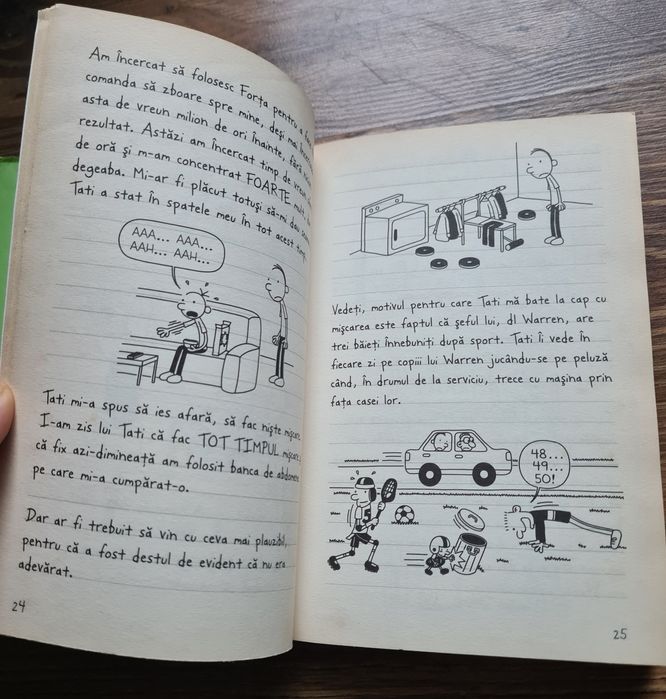 Am încercat să folosesc Forța pentru a
comanda să zboare spre mine, deși mai
asta de vreun milion de ori înainte, fără
rezultat. Astăzi am încercat timp de vreun
de oră și m-am concentrat FOARTE mult,
degeaba. Mi-ar fi plăcut totuși să-mi dau
Tati a stat în spatele meu în tot acest
AAA... AAA...
AAH... AAH...
Tati mi-a spus să ies afară, să fac niște mișcare.
I-am zis lui Tati că fac TOT TIMPUL mișcare
că fix azi-dimineață am folosit banca de abdomene
pe care mi-a cumpărat-o.
Dar ar fi trebuit să vin cu ceva mai plauzibil,
pentru că a fost destul de evident că nu era
adevărat.
24
Vedeți, motivul pentru care Tati mă bate la cap cu
mișcarea este faptul că șeful lui, dl Warren, are
trei băieți înnebuniți după sport. Tati îi vede în
fiecare zi pe copiii lui Warren jucându-se pe peluză
când, în drumul de la serviciu, trece cu mașina prin
fața casei lor.
48...
49...
50!
5
25